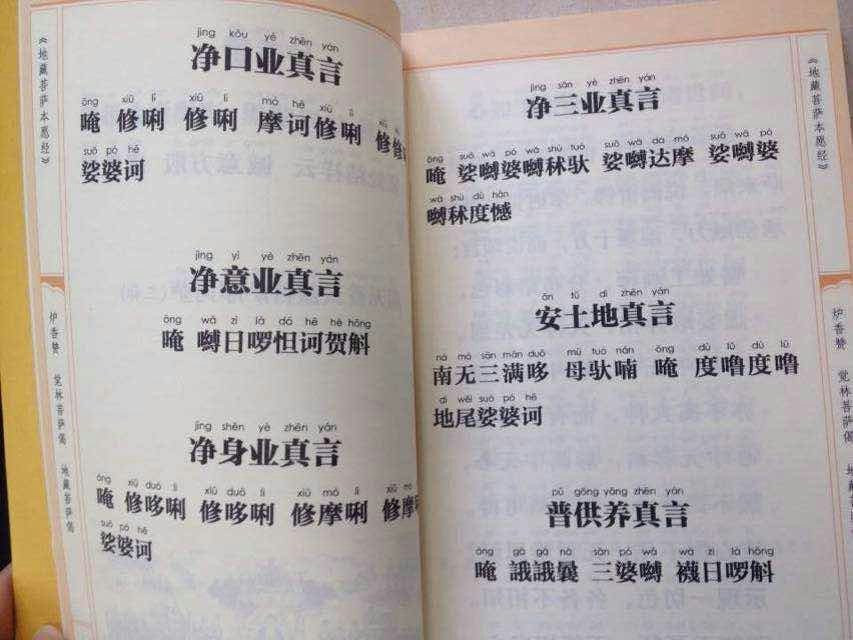 《地藏菩萨本愿经》
炉香赞 觉林菩萨偈 地藏菩萨偈
jìng kǒu yè zhēn yán
净口业真言
ōng xiū lì xiū lì mó hē xiū lì
唵 修唎 修唎 摩诃修唎 修修
suō pó hē
娑婆诃
jìng yì yè zhēn yán
净意业真言
ōng wà zì là dá hē hè hōng
唵 嚩日啰怛诃贺斛
jìng shēn yè zhēn yán
净身业真言
ōng xiū duō lì xiū duō lì xiū mó lì xiū mó
唵 修哆唎 修哆唎 修摩唎 修摩
suō pó hē
娑婆诃
jìng sān yè zhēn yán
净三业真言
ōng suō wà pó wà shù tuó suō wà dá mó suō wà pó
唵 娑嚩婆嚩秫驮 娑嚩达摩 娑嚩婆
wà shù dù hàn
嚩秫度憾
ān tǔ dì zhēn yán
安土地真言
ná mó sān mǎn duō mǔ tuó nán ōng dù lū dù lū
南无三满哆 母驮喃 唵 度噜度噜
dì wěi suō pó hē
地尾娑婆诃
pǔ gòng yǎng zhēn yán
普供养真言
ōng gā gā nà sān pó wà wà zì là hōng
唵 誐誐曩 三婆嚩 襪日啰斛
《地藏菩萨本愿经》
炉香赞 觉林菩萨偈 地藏菩